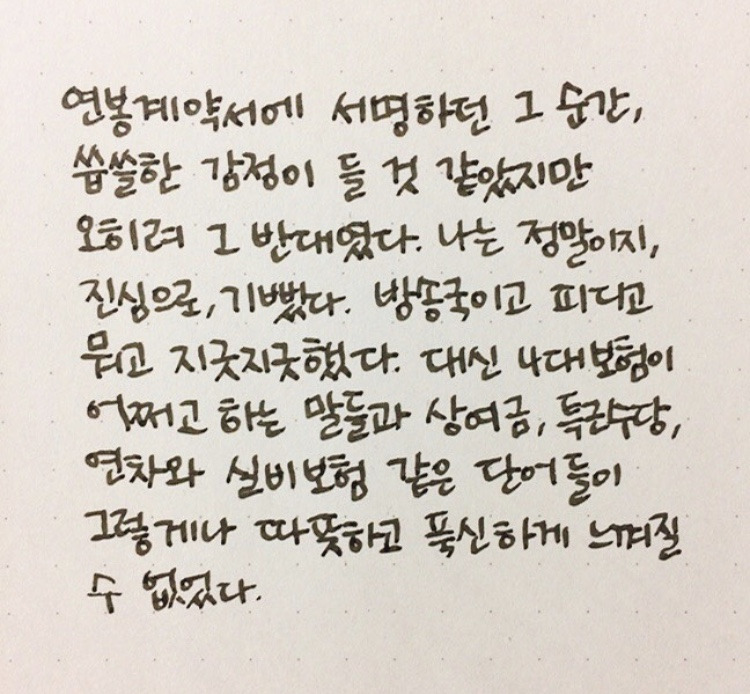 연봉계약서에 서명하던 그 순간,
씁쓸한 감정이 들 것 같았지만
오히려 그 반대였다. 나는 정말이지,
진심으로, 기뻤다. 방송국이고 피디고
뭐고 지긋지긋했다. 대신 4대보험이
어쩌고 하는 말들과 상여금, 특근수당,
연차와 실비보험 같은 단어들이
그렇게나 따뜻하고 푹신하게 느껴질
수 없었다.